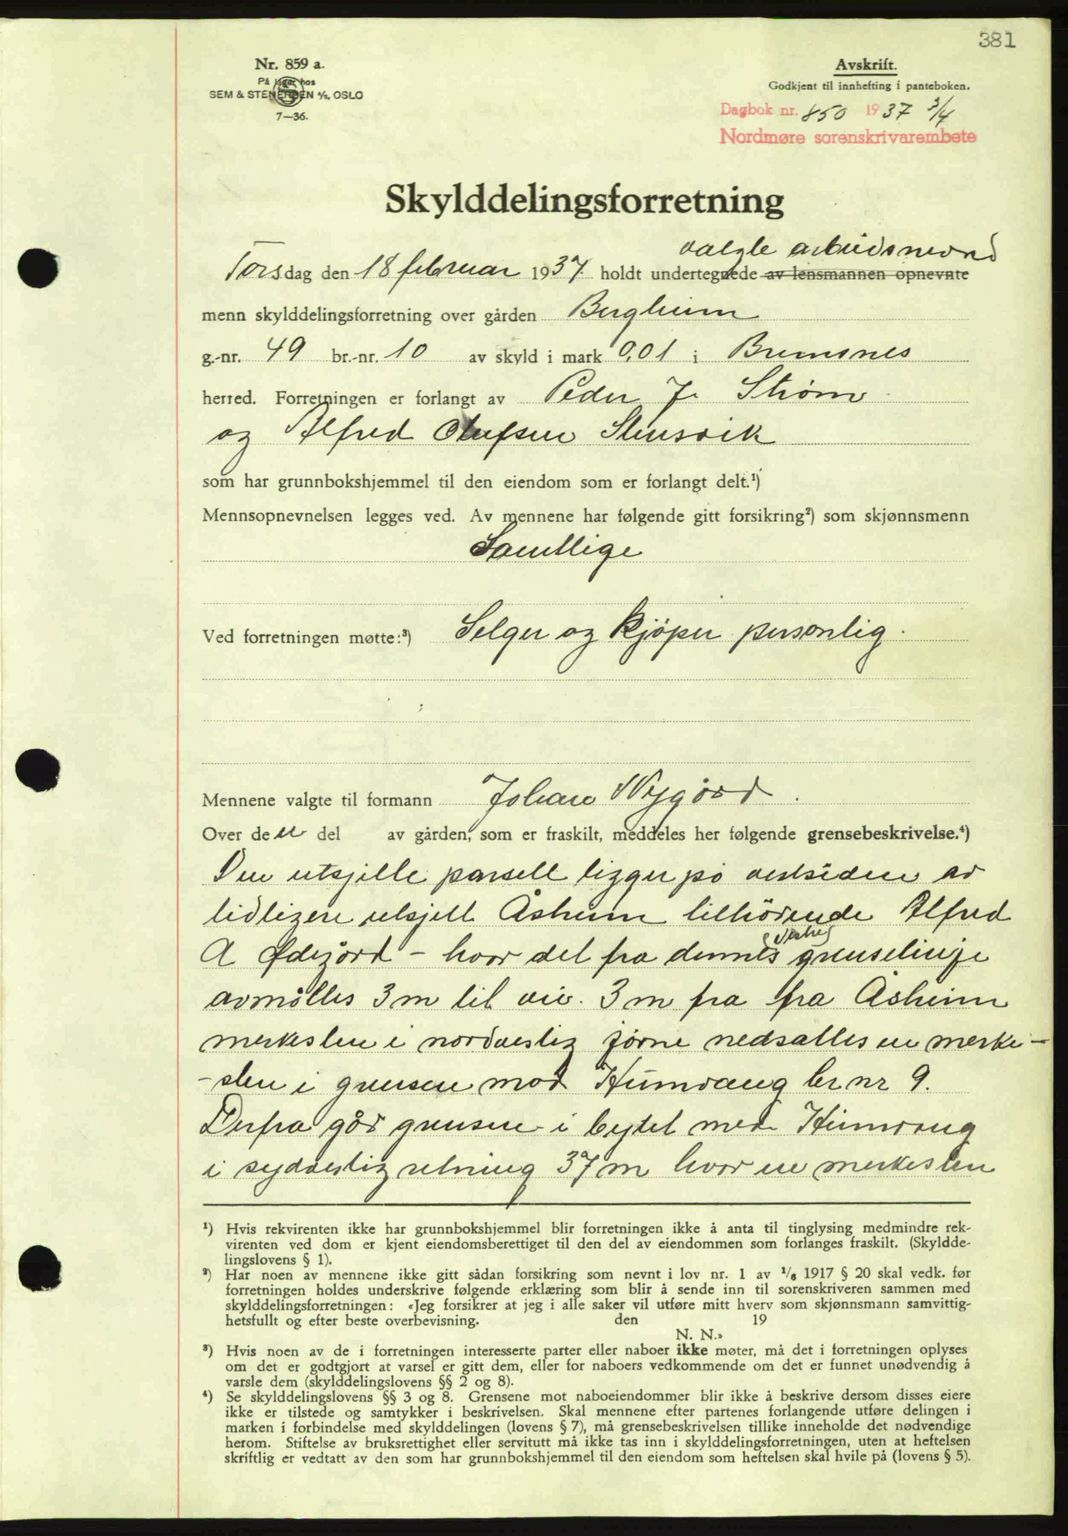 381
Nr. 859 a.
På lager hos
SEM & STENERSEN A/S, OSLO
7—36.
Avskrift.
Godkjent til innhefting i panteboken.
Dagbok nr. 850 1937 3/4
Nordmøre sorenskrivarembete
Skylddelingsforretning
valgte arbeidsnevnd
Torsdag den 18 februar 1937 holdt undertegnede av lensmannen opnevnte
menn skylddelingsforretning over gården Bergheim
g.-nr. 49 br.-nr. 10 av skyld i mark 0,01 i Bremsnes
herred. Forretningen er forlangt av Peder J. Strøm
og Alfred Olufsen Stensvik
som har grunnbokshjemmel til den eiendom som er forlangt delt.¹)
Mennsopnevnelsen legges ved. Av mennene har følgende gitt forsikring²) som skjønnsmenn
Samtlige
Ved forretningen møtte:³) Selger og kjöper personlig.
Mennene valgte til formann Johan Nygård.
Over den del av gården, som er fraskilt, meddeles her følgende grensebeskrivelse.⁴)
Den utsjilte parsell ligger på vestsiden av
tidligere utsjilt Åsheim tilhörende Alfred
A Ødegård - hvor det fra dennes vestre grenselinje
avmåltes 3 m til vei. 3 m fra fra Åsheim
merkesten i nordvestlig jörne nedsattes en merke-
-sten i grensen mod Humvang br nr 9.
Derfra går grensen i bytet med Humvang
i sydvestlig retning 37 m hvor en merkesten
¹) Hvis rekvirenten ikke har grunnbokshjemmel blir forretningen ikke å anta til tinglysing medmindre rek-
virenten ved dom er kjent eiendomsberettiget til den del av eiendommen som forlanges fraskilt. (Skyldde-
lingslovens § 1).
²) Har noen av mennene ikke gitt sådan forsikring som nevnt i lov nr. 1 av 1/6 1917 § 20 skal vedk. før
forretningen holdes underskrive følgende erklæring som blir å sende inn til sorenskriveren sammen med
skylddelingsforretningen: «Jeg forsikrer at jeg i alle saker vil utføre mitt hverv som skjønnsmann samvittig-
hetsfullt og efter beste overbevisning. den 19
N. N.»
³) Hvis noen av de i forretningen interesserte parter eller naboer ikke møter, må det i forretningen oplyses
om det er godtgjort at varsel er gitt dem, eller for naboers vedkommende om det er funnet unødvendig å
varsle dem (skylddelingslovens §§ 2 og 8).
⁴) Se skylddelingslovens §§ 3 og 8. Grensene mot naboeiendommer blir ikke å beskrive dersom disses eiere
ikke er tilstede og samtykker i beskrivelsen. Skal mennene efter partenes forlangende utføre delingen i
marken i forbindelse med skylddelingen (lovens § 7), må grensebeskrivelsen tillike inneholde det nødvendige
herom. Stiftelse av bruksrettighet eller servitutt må ikke tas inn i skylddelingsforretningen, uten at heftelsen
skriftlig er vedtatt av den som har grunnbokshjemmel til den eiendom som heftelsen skal hvile på (lovens § 5).